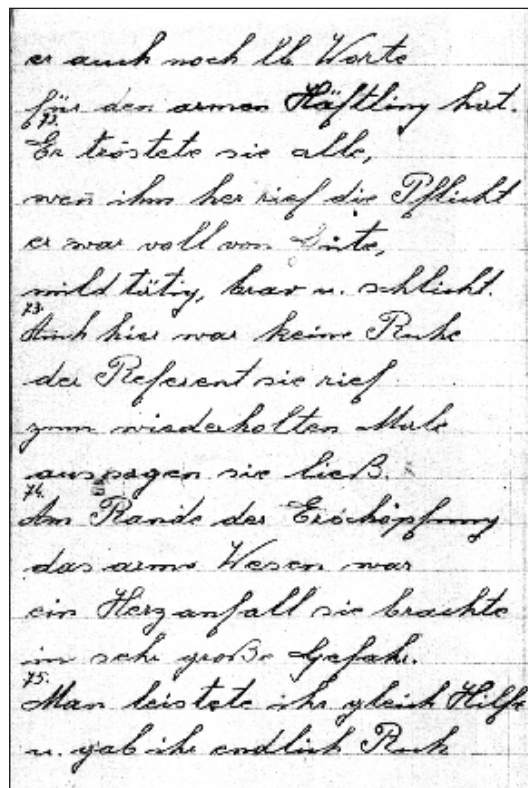 er auch noch lb Worte
für den armen Häftling hat.
72.
Er tröstete sie alle,
wen̄ ihm her rief die Pflicht
er war voll von Güte,
mild tätig, brav u. schlicht.
73.
Auch hier war keine Ruhe
der Referent sie rief
zum wiederholten Male
aussagen sie ließ.
74.
Am Rande der Erschöpfung
das arme Wesen war
ein Herzanfall sie brachte
in sehr große Gefahr.
75.
Man leistete ihr gleich Hilfe
u. gab ihr endlich Ruh